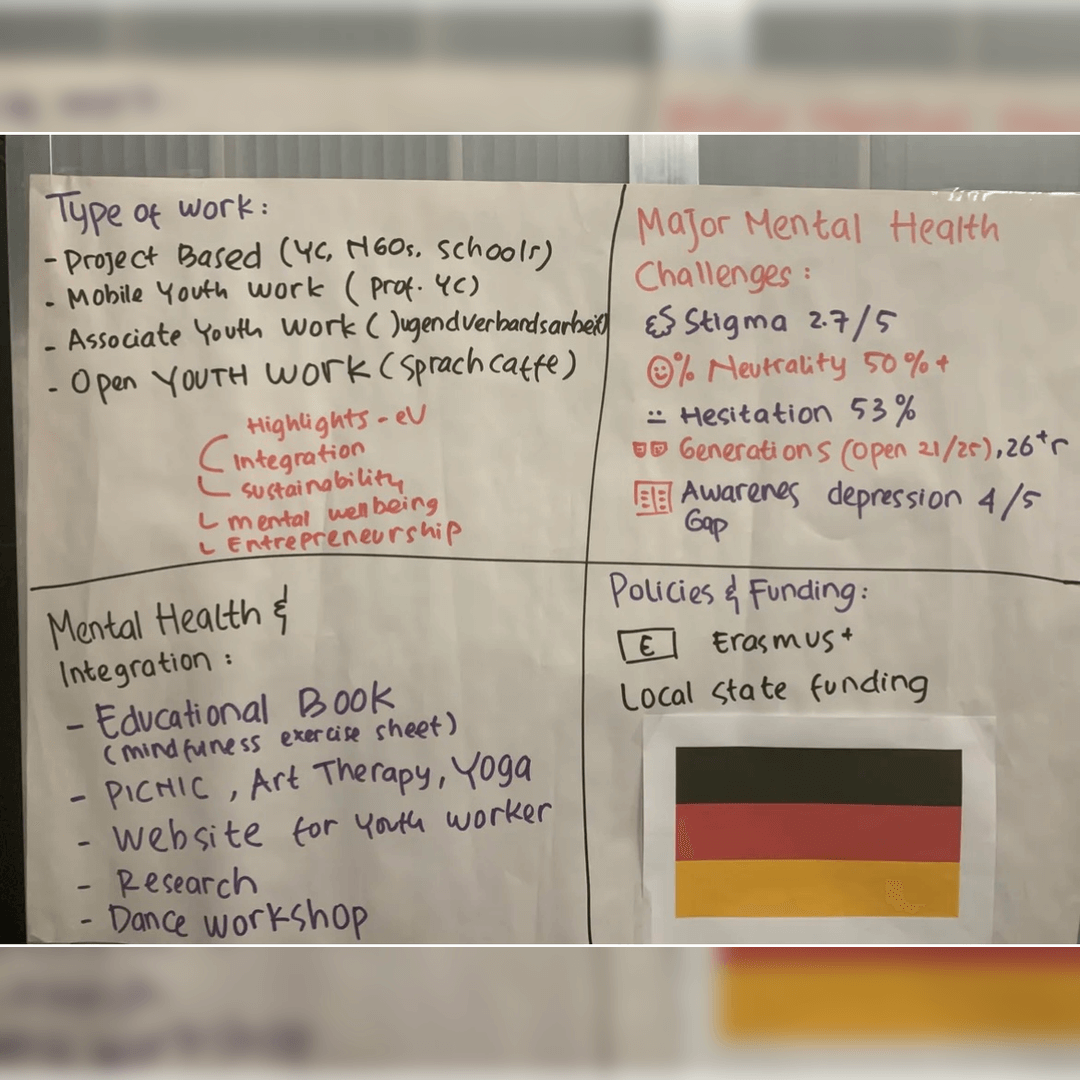 Type of work:
- Project Based (YC, NGOs. schools)
- Mobile Youth work ( Prof. YC)
- Associate Youth Work (Jugendverbandsarbeit)
- Open YOUTH WORK (Sprachcaffe)
Highlights - eV
Integration
sustainability
mental wellbeing
Entrepreneurship
Major Mental Health
Challenges :
Stigma 2.7/5
% Neutrality 50%+
Hesitation 53%
Generations (open 21/25), 26+r
Awarenes depression 4/5
Gap
Mental Health &
Integration :
- Educational BOOK
(mindfuness exercise sheet)
- PICNIC , Art Therapy, Yoga
- Website for Youth worker
- Research
- Dance workshop
Policies & Funding:
E Erasmus+
Local state funding